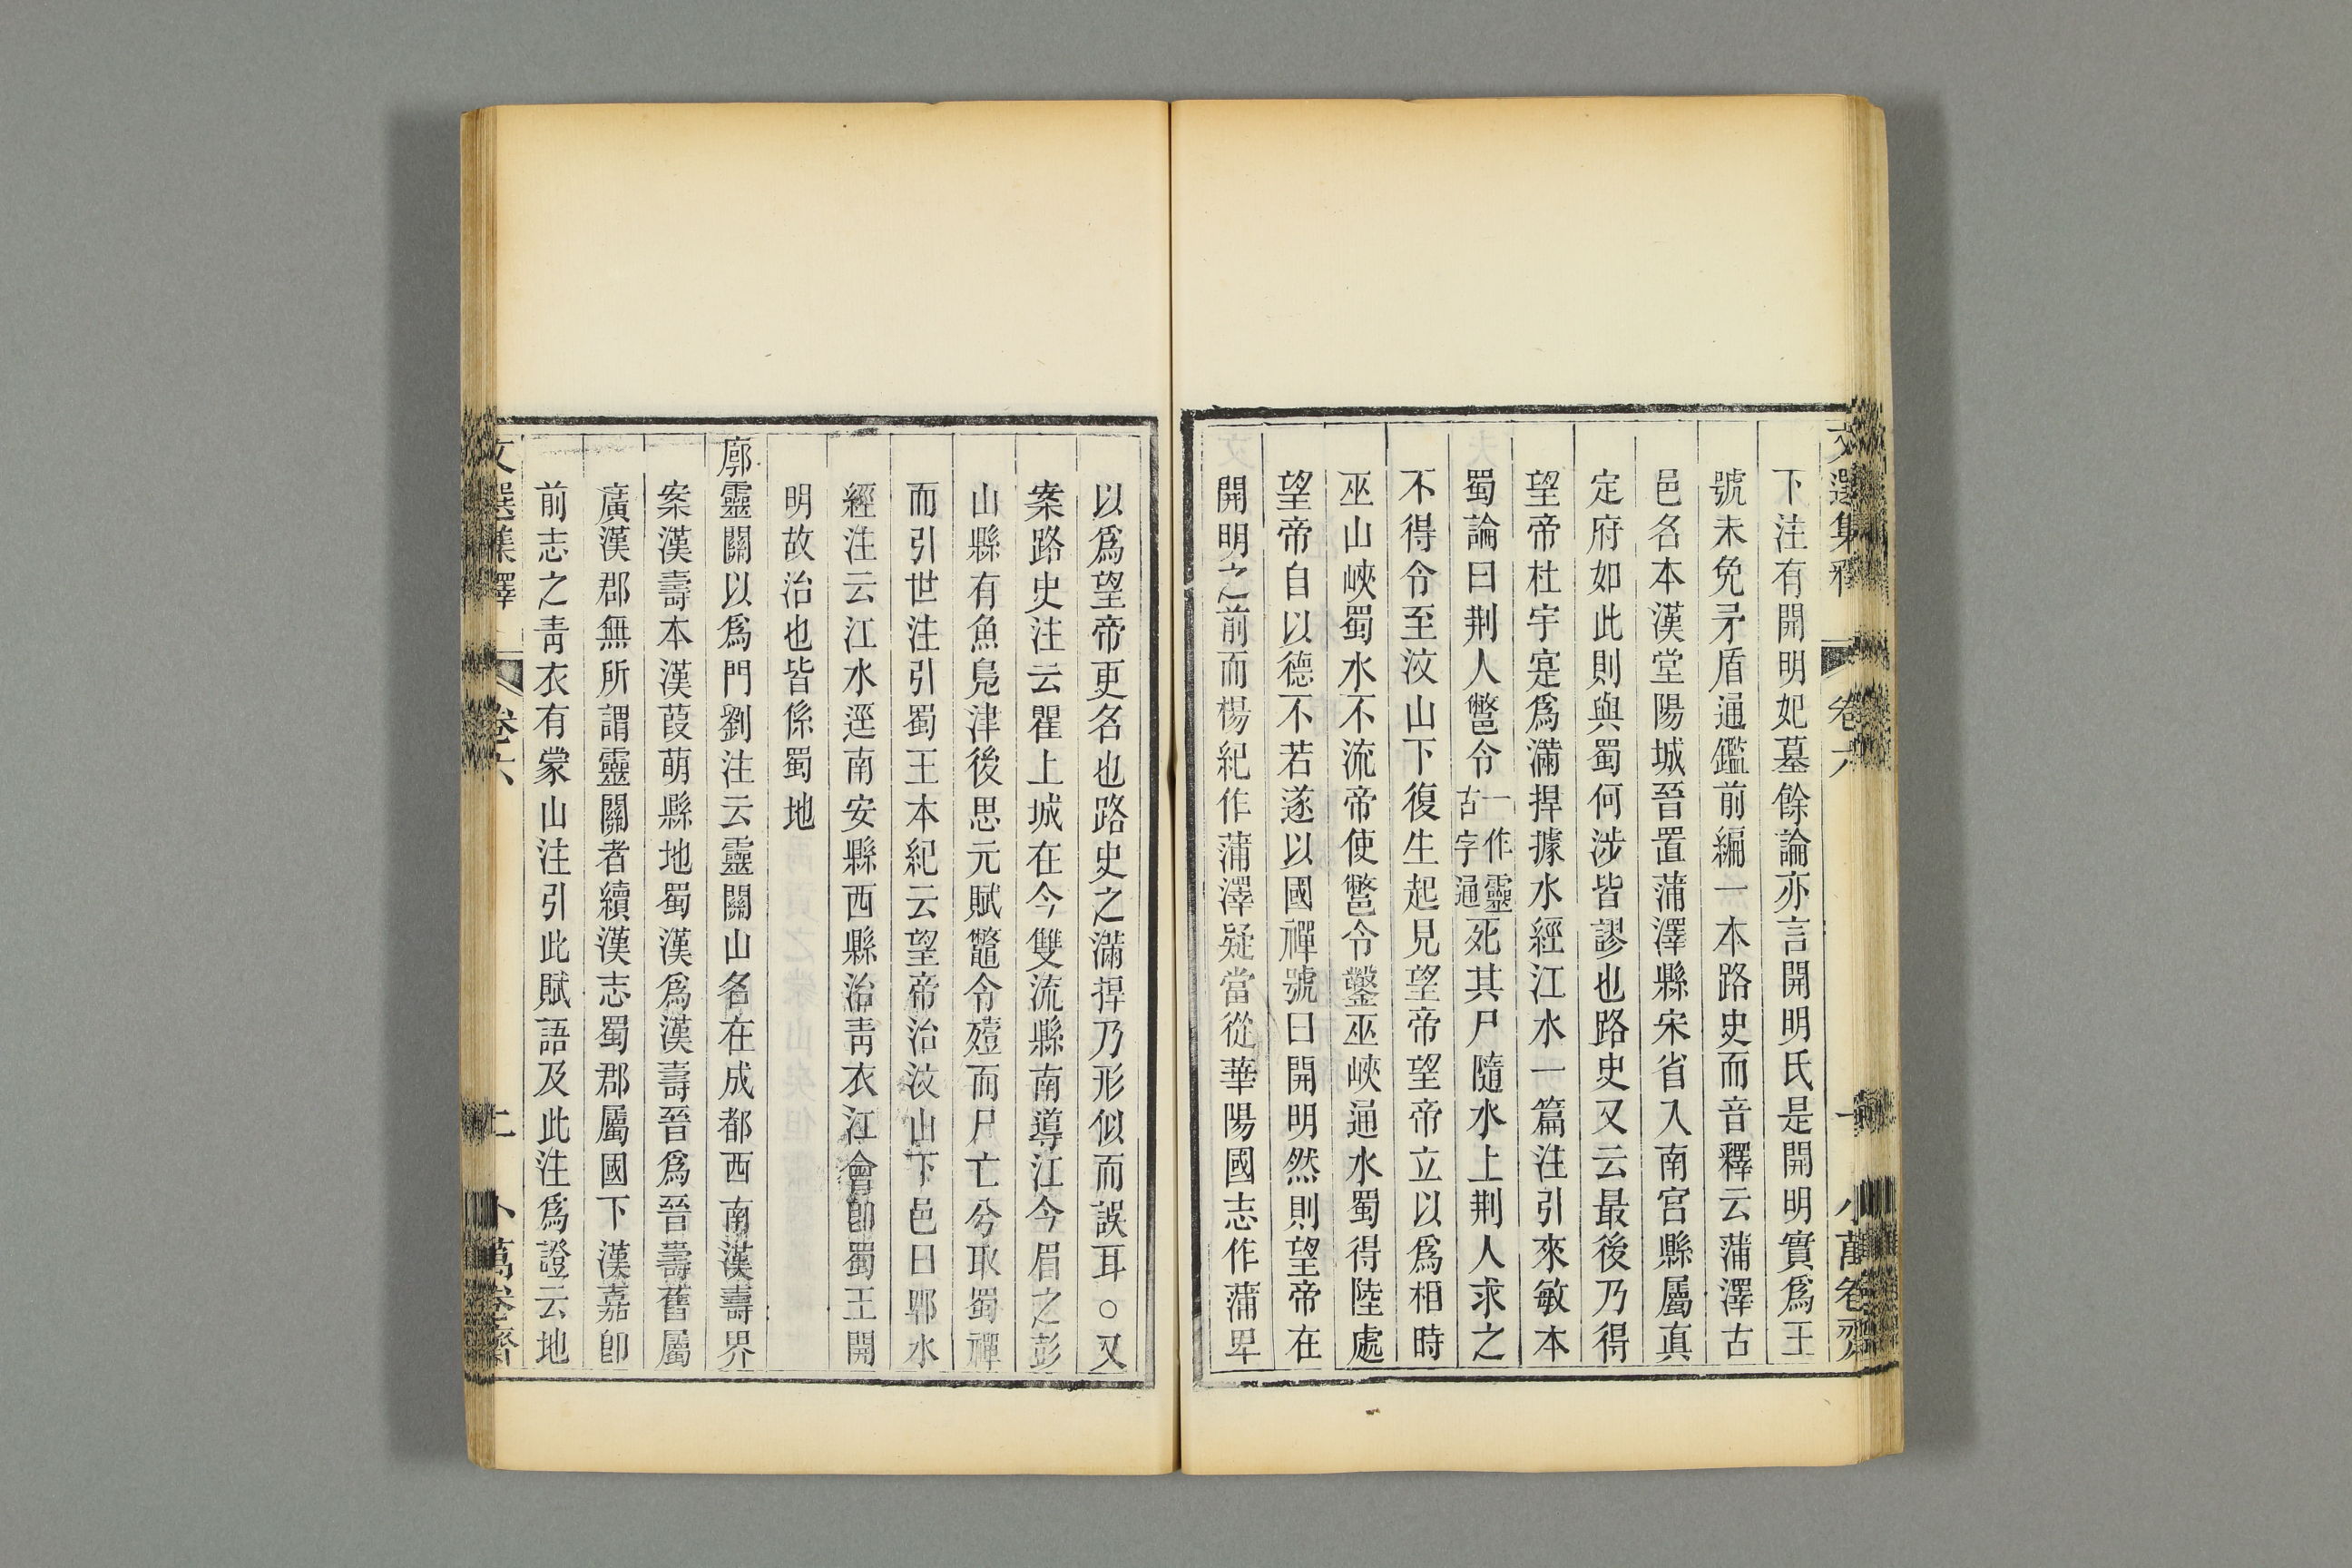 下注有開明妃墓餘論亦言開明氏是開明實爲王
號未免矛盾通鑑前編一本路史而音釋云蒲澤古
邑名本漢堂陽城晉置蒲澤縣宋省入南宮縣屬真
定府如此則與蜀何涉皆謬也路史又云最後乃得
望帝杜宇寔爲滿捍據水經江水一篇注引來敏本
蜀論曰荆人鄨令一作靈古字通死其尸隨水上荆人求之
不得令至汶山下復生起見望帝望帝立以爲相時
巫山峽蜀水不流帝使鄨令鑿巫峽通水蜀得陸處
望帝自以德不若遂以國禪號曰開明然則望帝在
開明之前而楊紀作蒲澤疑當從華陽國志作蒲卑
以爲望帝更名也路史之滿捍乃形似而誤耳○又
案路史注云瞿上城在今雙流縣南導江今眉之彭
山縣有魚鳧津後思元賦鼈令殪而尸亡兮取蜀禪
而引世注引蜀王本紀云望帝治汶山下邑曰郫水
經注云江水逕南安縣西縣治青衣江會卽蜀王開
明故治也皆係蜀地
廓靈關以爲門劉注云靈關山名在成都西南漢壽界
案漢壽本漢葭萌縣地蜀漢爲漢壽晉爲晉壽舊屬
廣漢郡無所謂靈關者續漢志蜀郡屬國下漢嘉卽
前志之青衣有蒙山注引此賦語及此注爲證云地
文選集釋 卷六